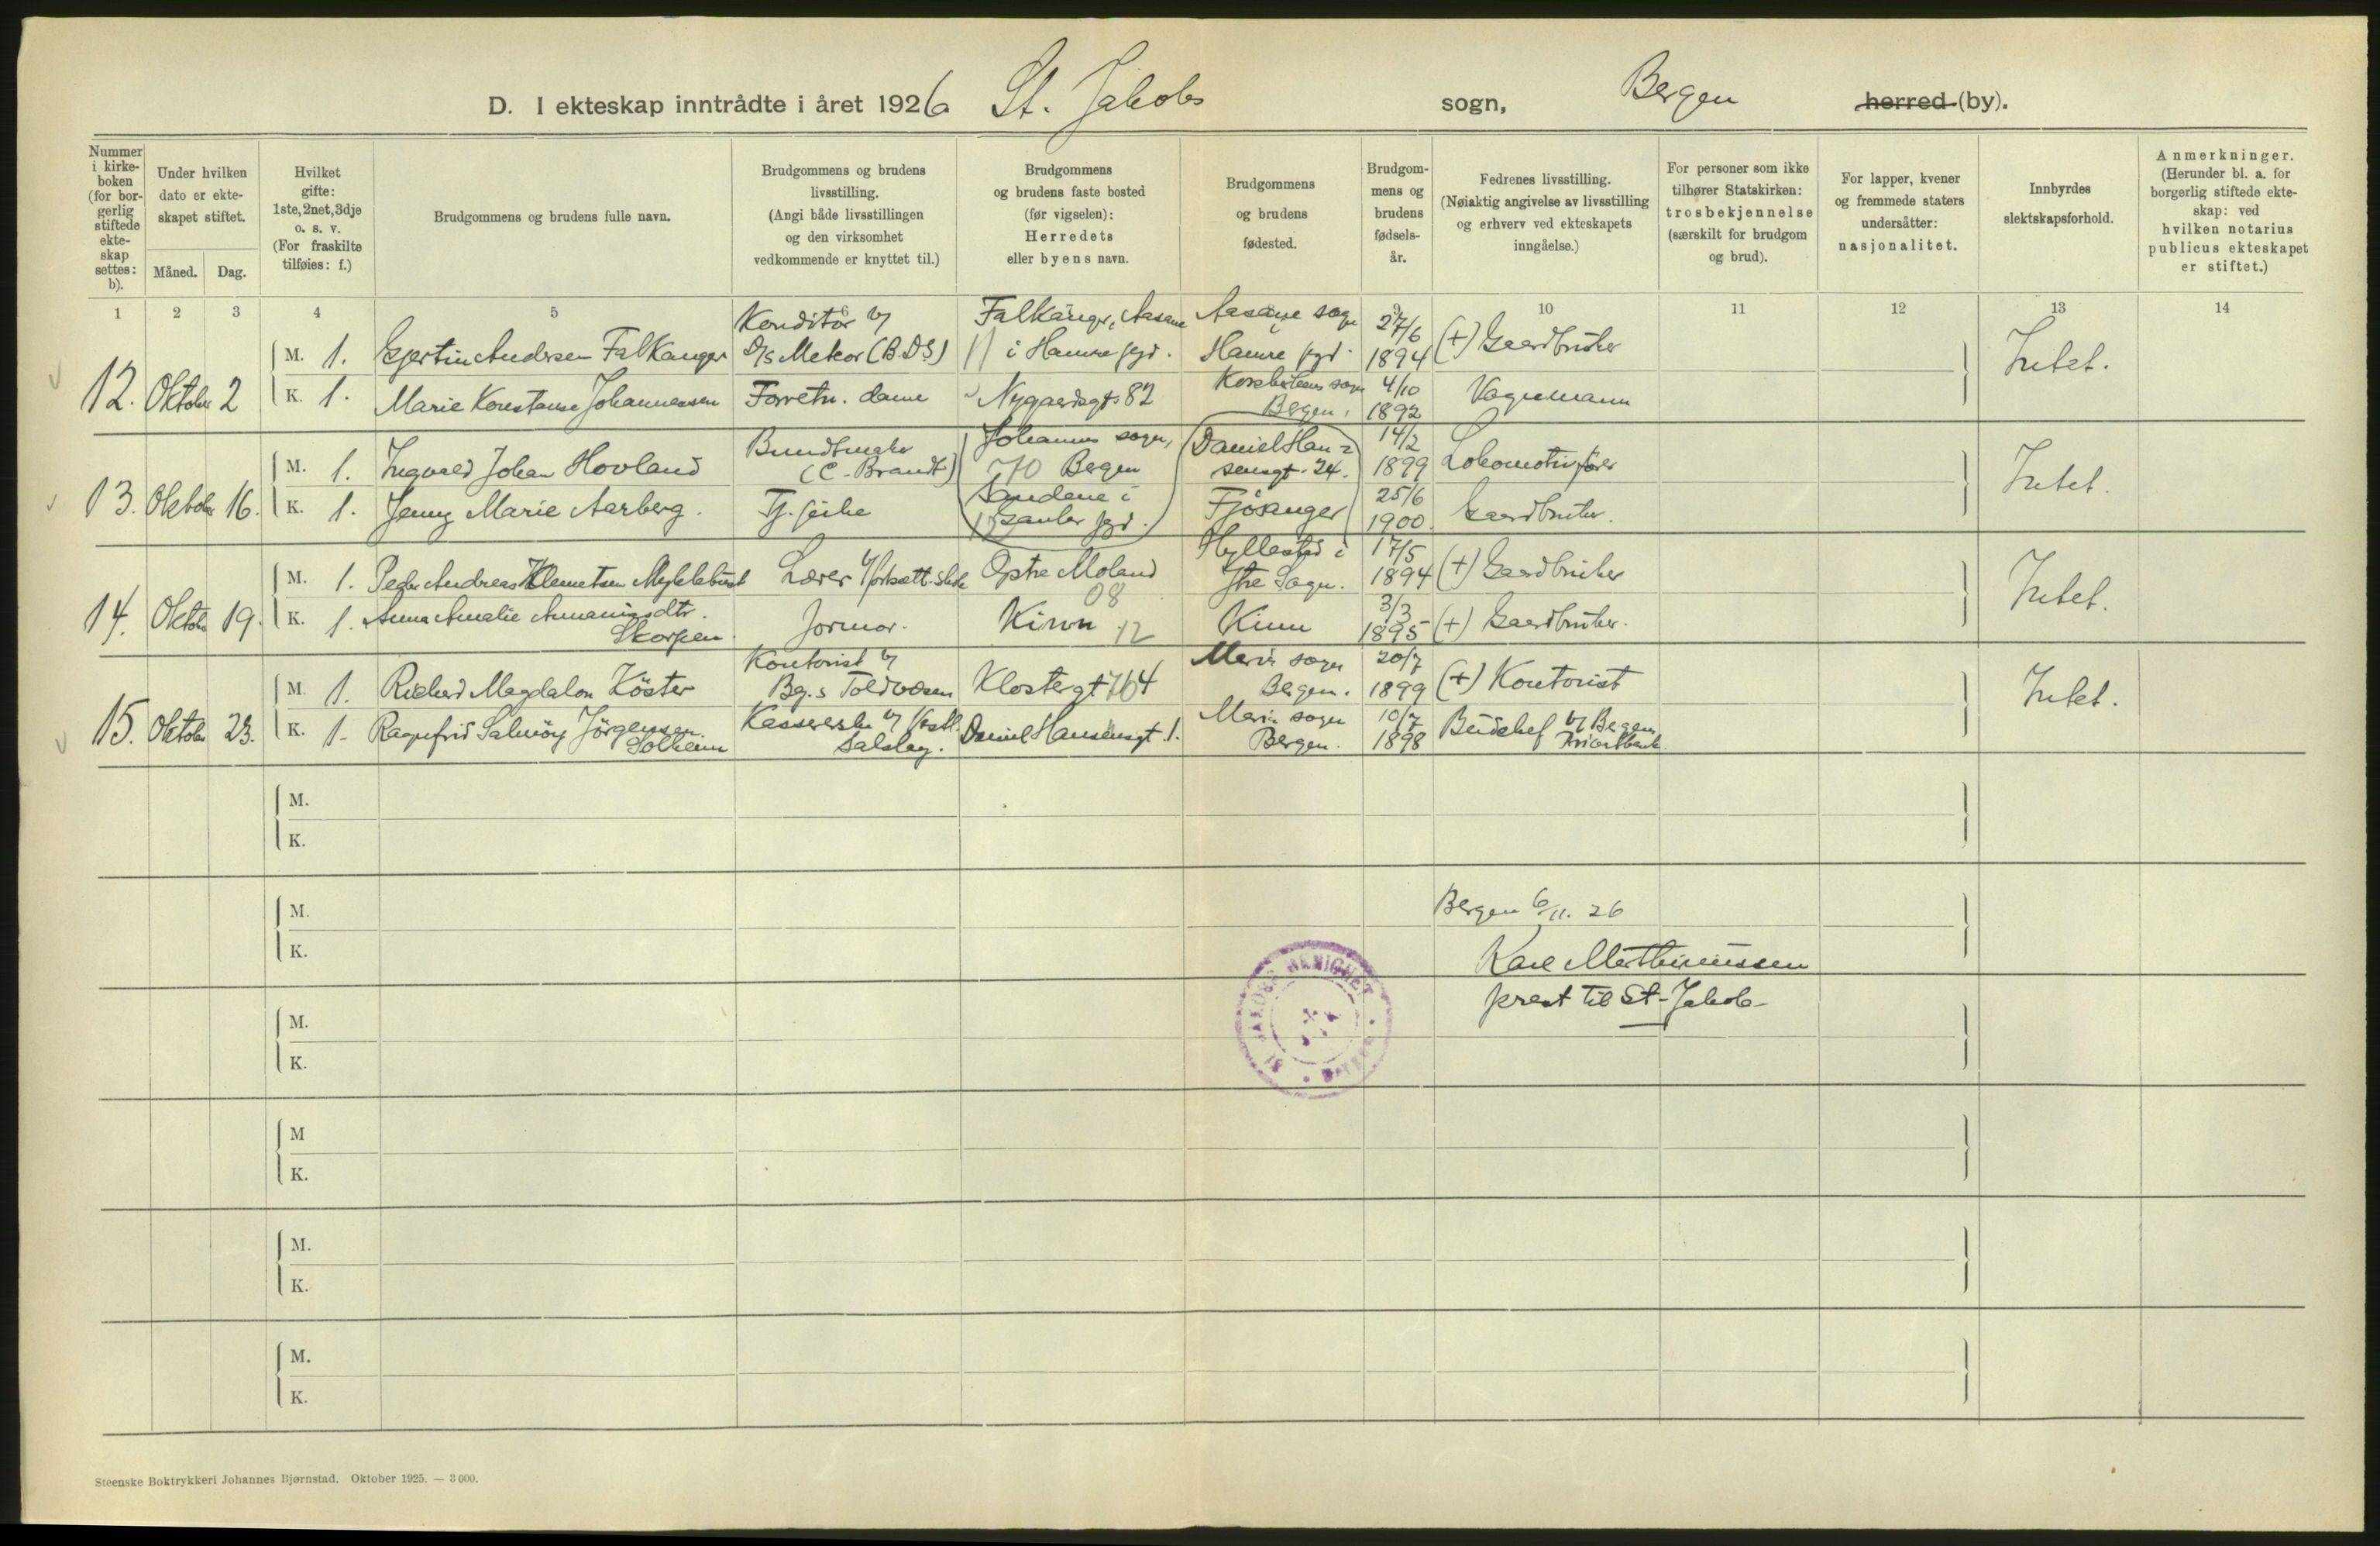 D. I ekteskap inntrådte i året 1926 St. Jakobs sogn, Bergen herred (by).
Nummer i kirkeboken (for borgerlig stiftede ekteskap settes: b).
Under hvilken dato er ekteskapet stiftet.
Måned. Dag.
Hvilket gifte: 1ste, 2net, 3dje o. s. v. (For fraskilte tilføies: f.)
Brudgommens og brudens fulle navn.
Brudgommens og brudens livsstilling. (Angi både livsstillingen og den virksomhet vedkommende er knyttet til.)
Brudgommens og brudens faste bosted (før vigselen): Herredets eller byens navn.
Brudgommens og brudens fødested.
Brudgommens og brudens fødselsår.
Fedrenes livsstilling. (Nøiaktig angivelse av livsstilling og erhverv ved ekteskapets inngåelse.)
For personer som ikke tilhører Statskirken: trosbekjennelse (særskilt for brudgom og brud).
For lapper, kvener og fremmede staters undersåtter: nasjonalitet.
Innbyrdes slektskapsforhold.
Anmerkninger. (Herunder bl. a. for borgerlig stiftede ekteskap: ved hvilken notarius publicus ekteskapet er stiftet.)
1 2 3 4 5 6 7 8 9 10 11 12 13 14
12. Oktober 2
M. 1. Gjertin Andersen Falkanger Konditor v/ D/S Meteor (B.D.S) Falkanger, Aasane i Hamre pgd. Aasane sogn Hamre pgd. 27/6 1894 (+) Gaardbruker Intet.
K. 1. Marie Konstanse Johannessen Forretn. dame Nygaardsgt. 82 Korskirkens sogn Bergen. 4/10 1892 Vognmann
13. Oktober 16.
M. 1. Ingvald Johan Hovland Bundtmaker (C. Brandt) Johannes sogn, Bergen Daniel Hansensgt. 24. 14/2 1899 Lokomotivfører Intet.
K. 1. Jenny Marie Aarberg. Tj. pike Sandene i Gauler pgd. Fjøsanger 25/6 1900. Gaardbruker.
14. Oktober 19.
M. 1. Peder Andreas Klemetsen Myklebust Lærer v/ fortsett. skole Øptre Moland 08 Hyllestad i Ytre Sogn. 17/5 1894 (+) Gaardbruker Intet.
K. 1. Anna Amalie Ananiasdtr. Skorpen Jormor. Kinn 12 Kinn 3/3 1895 (+) Gaardbruker.
15. Oktober 23.
M. 1. Richard Magdalon Köster Kontorist v/ Bg.s Toldvæsen Klostergt 64 Maria sogn Bergen. 20/7 1899 (+) Kontorist Intet.
K. 1. Ragnfrid Salmöy Jörgensen Solheim Kassererske v/ Vestl. Salslag. Daniel Hansensgt. 1. Maria sogn Bergen. 10/7 1898 Budchef v/ Bergens Privatbank.
M.
K.
M.
K.
Bergen 6/11. 26
Karl Marthinussen
prest til St. Jakob
ST JAKOBS MENIGHET BERGEN
M.
K.
M
K.
M.
K.
M.
K.
Steenske Boktrykkeri Johannes Bjørnstad. Oktober 1925. — 3 000.